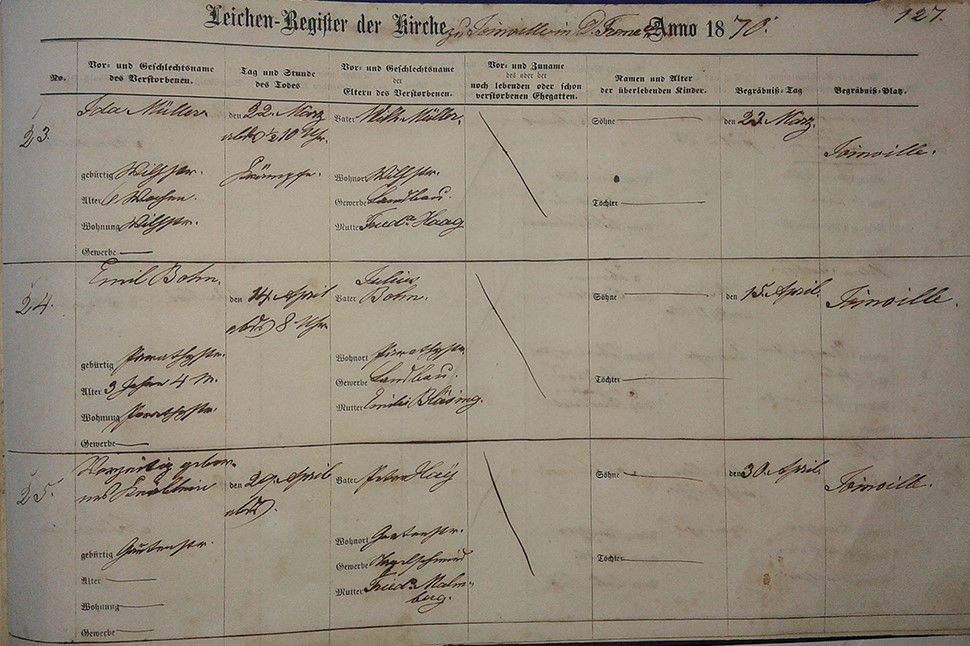 127.
Leichen-Register der Kirche zu Joinville in D. Franca Anno 1870.
No.
Vor- und Geschlechtsname des Verstorbenen.
Tag und Stunde des Todes
Vor- und Geschlechtsname der Eltern des Verstorbenen.
Vor- und Zuname des oder der noch lebenden oder schon verstorbenen Ehegatten.
Namen und Alter der überlebenden Kinder.
Begräbniß-Tag
Begräbniß-Platz.
23.
Ida Müller
gebürtig
Alter 6 Wochen.
Wohnung
Gewerbe —
den 22. März
abds ½10 Uhr.
Krämpfe.
Vater Wilh. Müller.
Wohnort
Gewerbe Landbau.
Mutter Fried.a Haag
Söhne —
Töchter —
den 23. März.
Joinville.
24.
Emil Bohn.
gebürtig
Alter 3 Jahre 4 M.
Wohnung
Gewerbe —
den 14. April
abds 8 Uhr
Julius
Vater Bohn.
Wohnort
Gewerbe Landbau.
Mutter Emilie Bläsing.
Söhne —
Töchter —
den 15. April.
Joinville.
25.
Vorzeitig gebor-
nes Knäblein
gebürtig
Alter —
Wohnung —
Gewerbe —
den 29. April
abds.
Vater Peter
Wohnort
Gewerbe Nagelschmied
Mutter Fried.a Malm-
berg.
Söhne —
Töchter —
den 30. April.
Joinville.